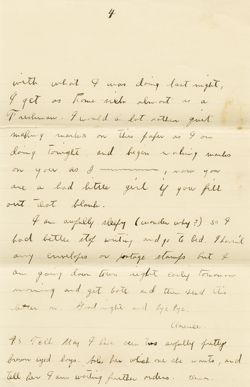 4
with what I was doing last night,
I get as home sick almost as a
Freshman. I would a lot rather quit
making marks on this paper as I am
doing tonight, and began making marks
on your as I ————, now you
are a bad little girl if you fill
out that blank.
I am awfully sleepy (wonder why?) so I
had better stop writing and go to bed. I haven't
any envelopes or postage stamps but I
am going down town right early tomorrow
morning and get both and then send this
letter on. Good night and bye bye.
P.S. Tell May I have seen two awfully pretty
brown eyed boys. Ask her what one she wants, and
tell her I am waiting further orders.